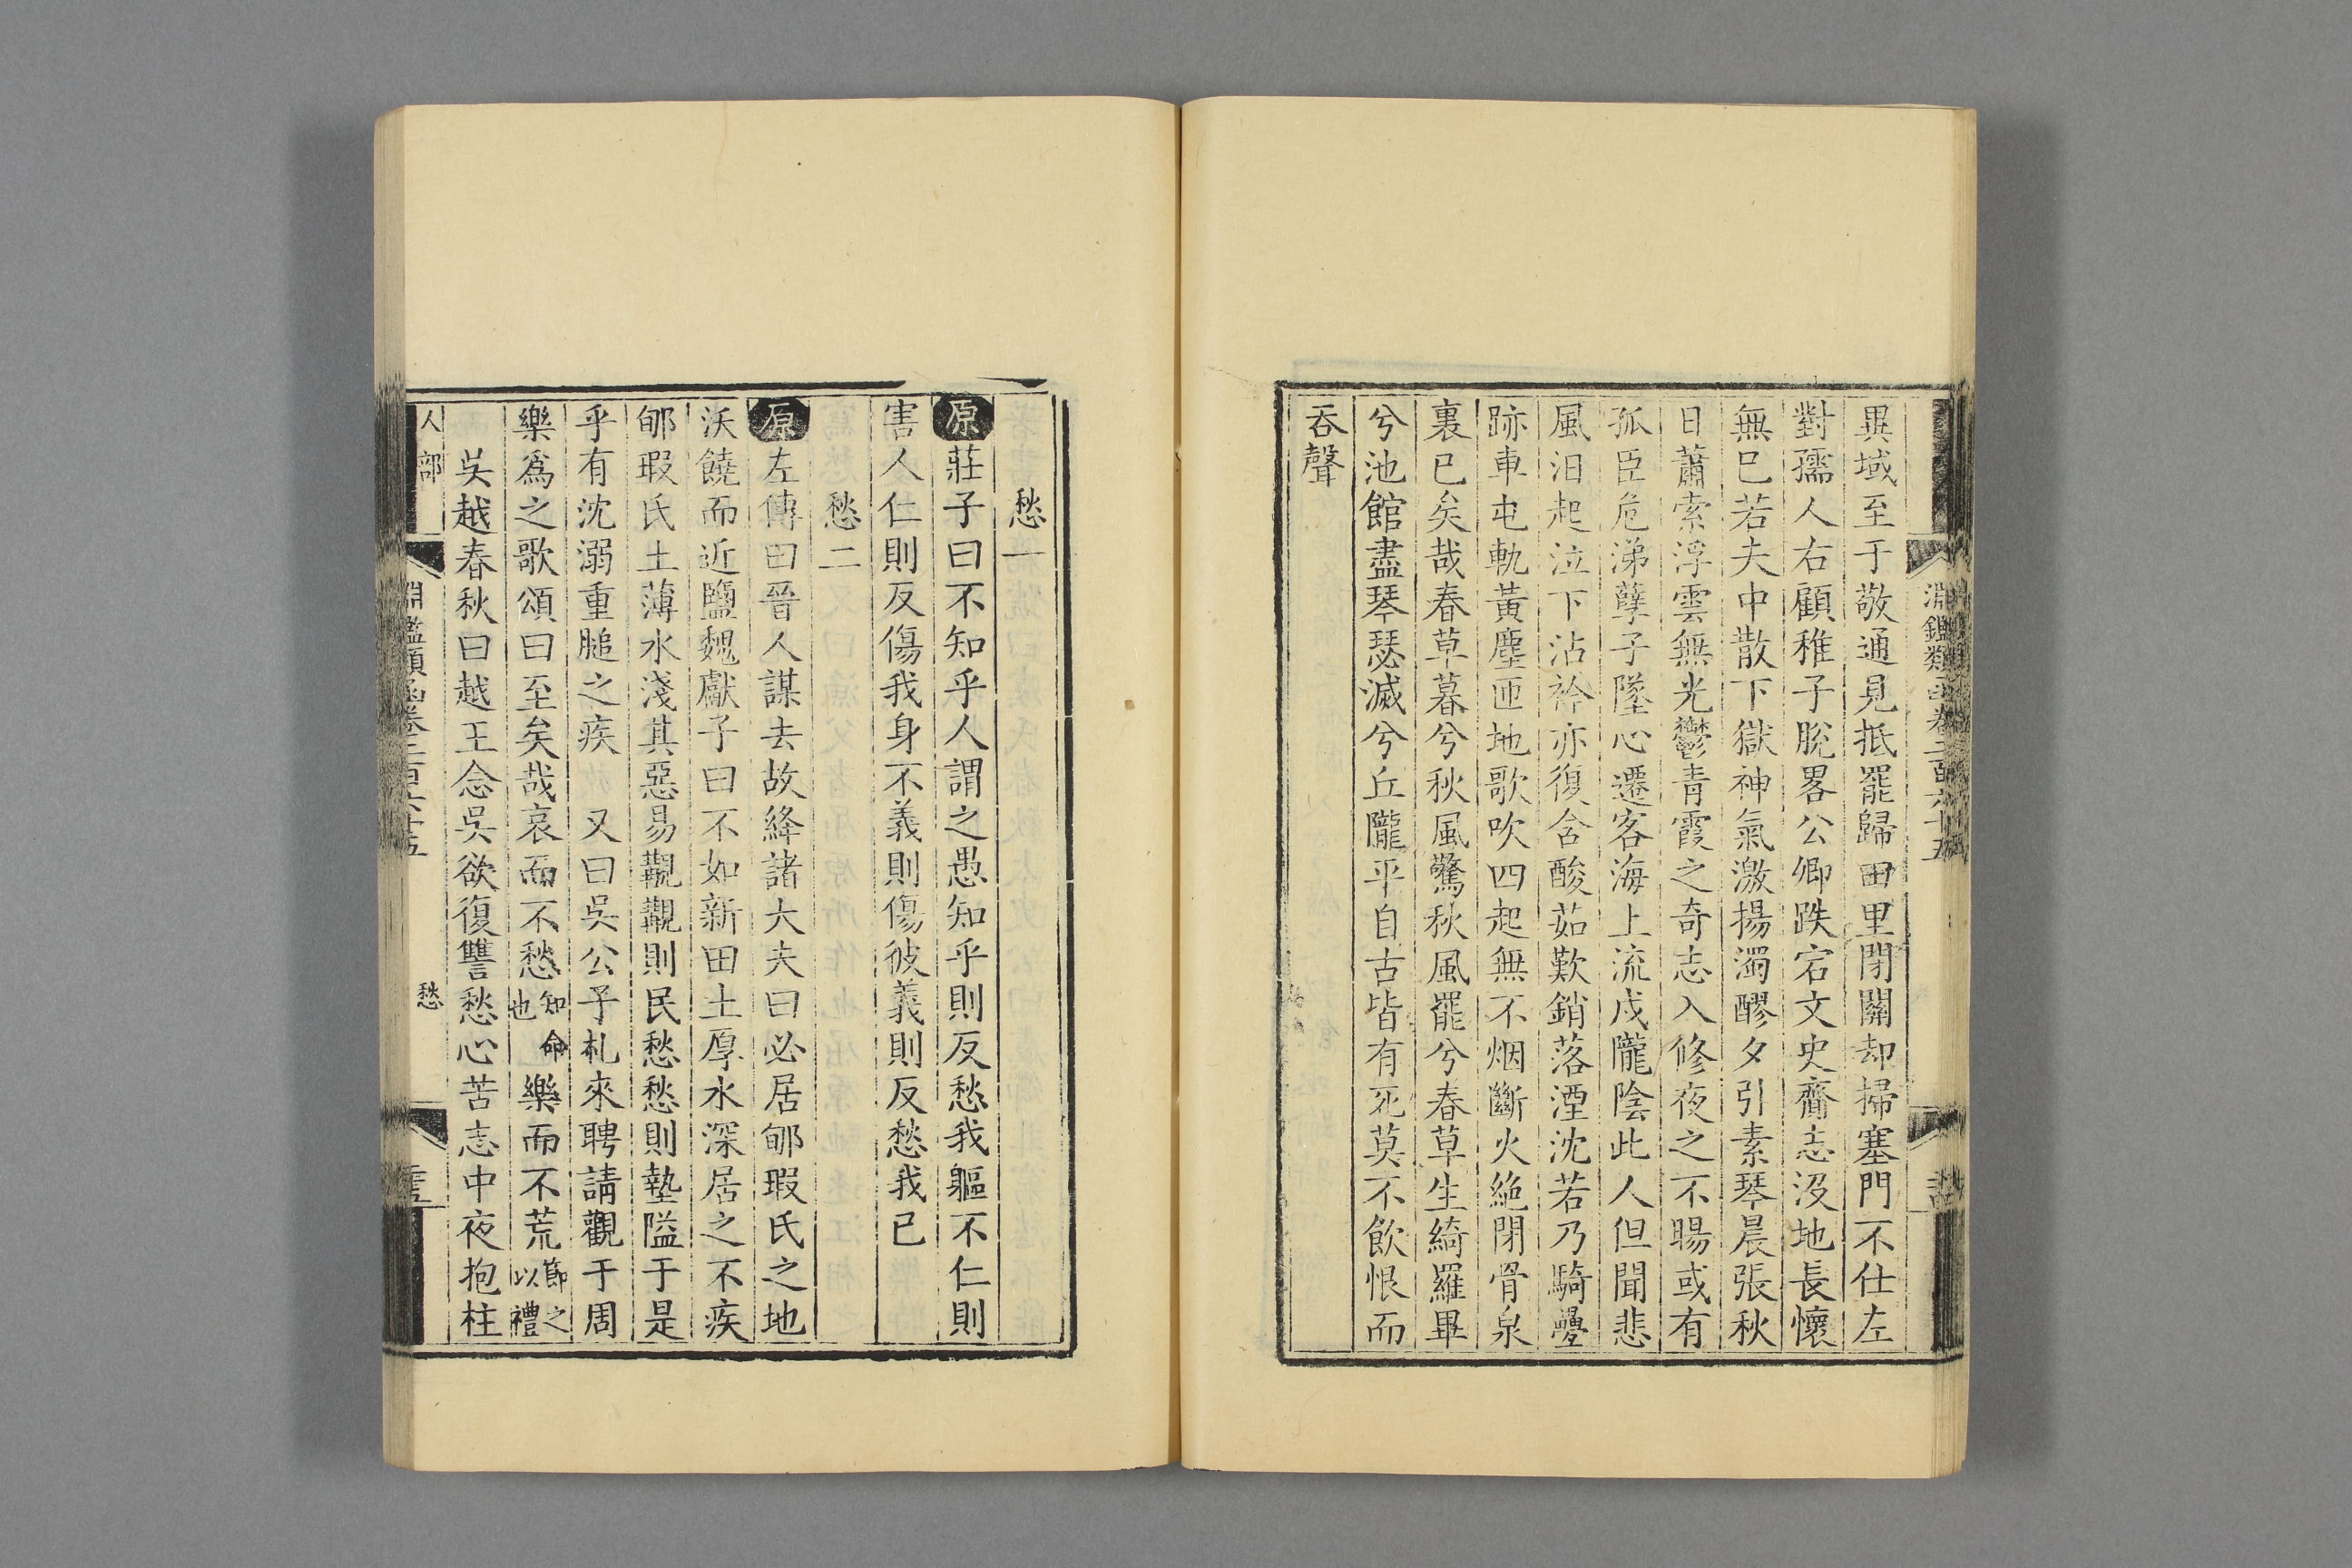 異域至于敬通見抵罷歸田里閉關却掃塞門不仕左
對孺人右顧稚子脫畧公卿跌宕文史齎志沒地長懷
無已若夫中散下獄神氣激揚濁醪夕引素琴晨張秋
日蕭索浮雲無光鬱青霞之奇志入修夜之不暘或有
孤臣危涕孽子墜心遷客海上流戍隴陰此人但聞悲
風汨起泣下沾衿亦復含酸茹歎銷落湮沈若乃騎疊
跡車屯軌黃塵匝地歌吹四起無不烟斷火絶閉骨泉
裏已矣哉春草暮兮秋風驚秋風罷兮春草生綺羅畢
兮池館盡琴瑟滅兮丘隴平自古皆有死莫不飲恨而
吞聲
淵鑑類函卷二百六十五
愁一
原莊子曰不知乎人謂之愚知乎則反愁我軀不仁則
害人仁則反傷我身不義則傷彼義則反愁我已
愁二
原左傳曰晉人謀去故絳諸大夫曰必居郇瑕氏之地
沃饒而近鹽魏獻子曰不如新田土厚水深居之不疾
郇瑕氏土薄水淺其惡易觀觀則民愁愁則墊隘于是
乎有沈溺重膇之疾 又曰吳公子札來聘請觀于周
樂爲之歌頌曰至矣哉哀而不愁知命也樂而不荒節之以禮
吳越春秋曰越王念吳欲復讐愁心苦志中夜抱柱
人部
淵鑑類函卷二百六十五
愁